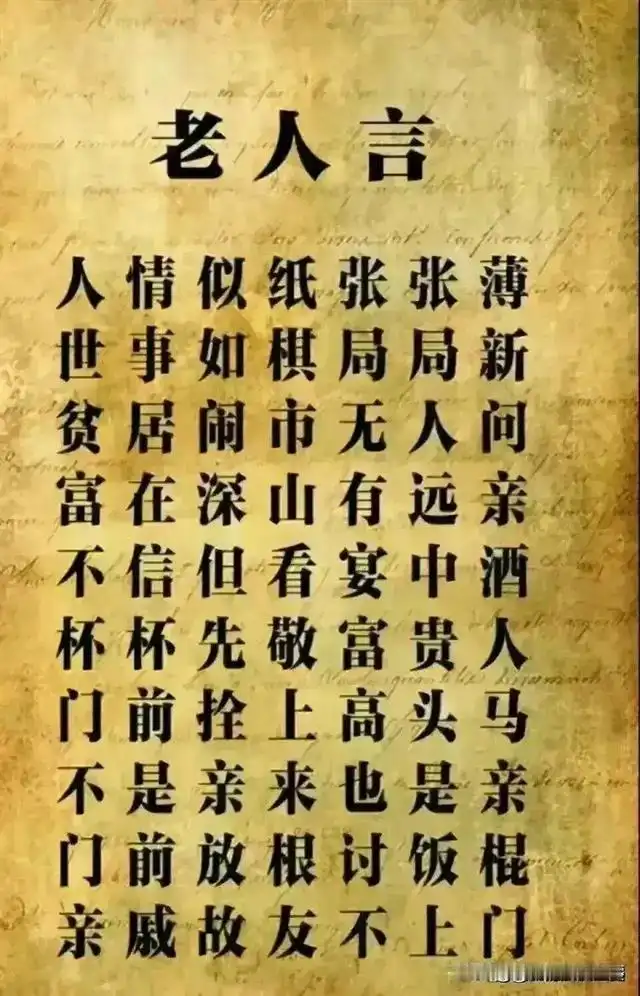 老人言
人情似纸张张薄
世事如棋局局新
贫居闹市无人问
富在深山有远亲
不信但看宴中酒
杯杯先敬富贵人
门前拴上高头马
不是亲来也是亲
门前放根讨饭棍
亲戚故友不上门